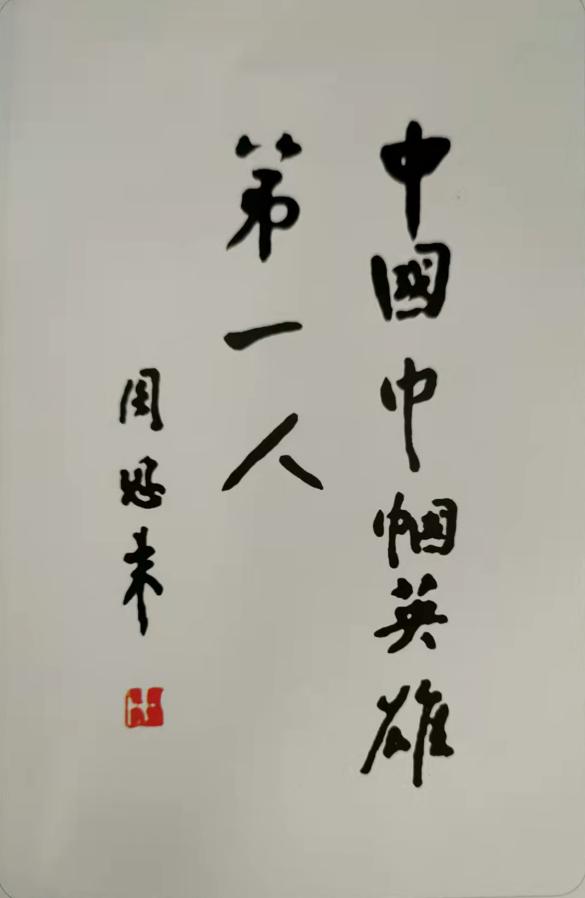 中國巾帼英雄
第一人
周恩来